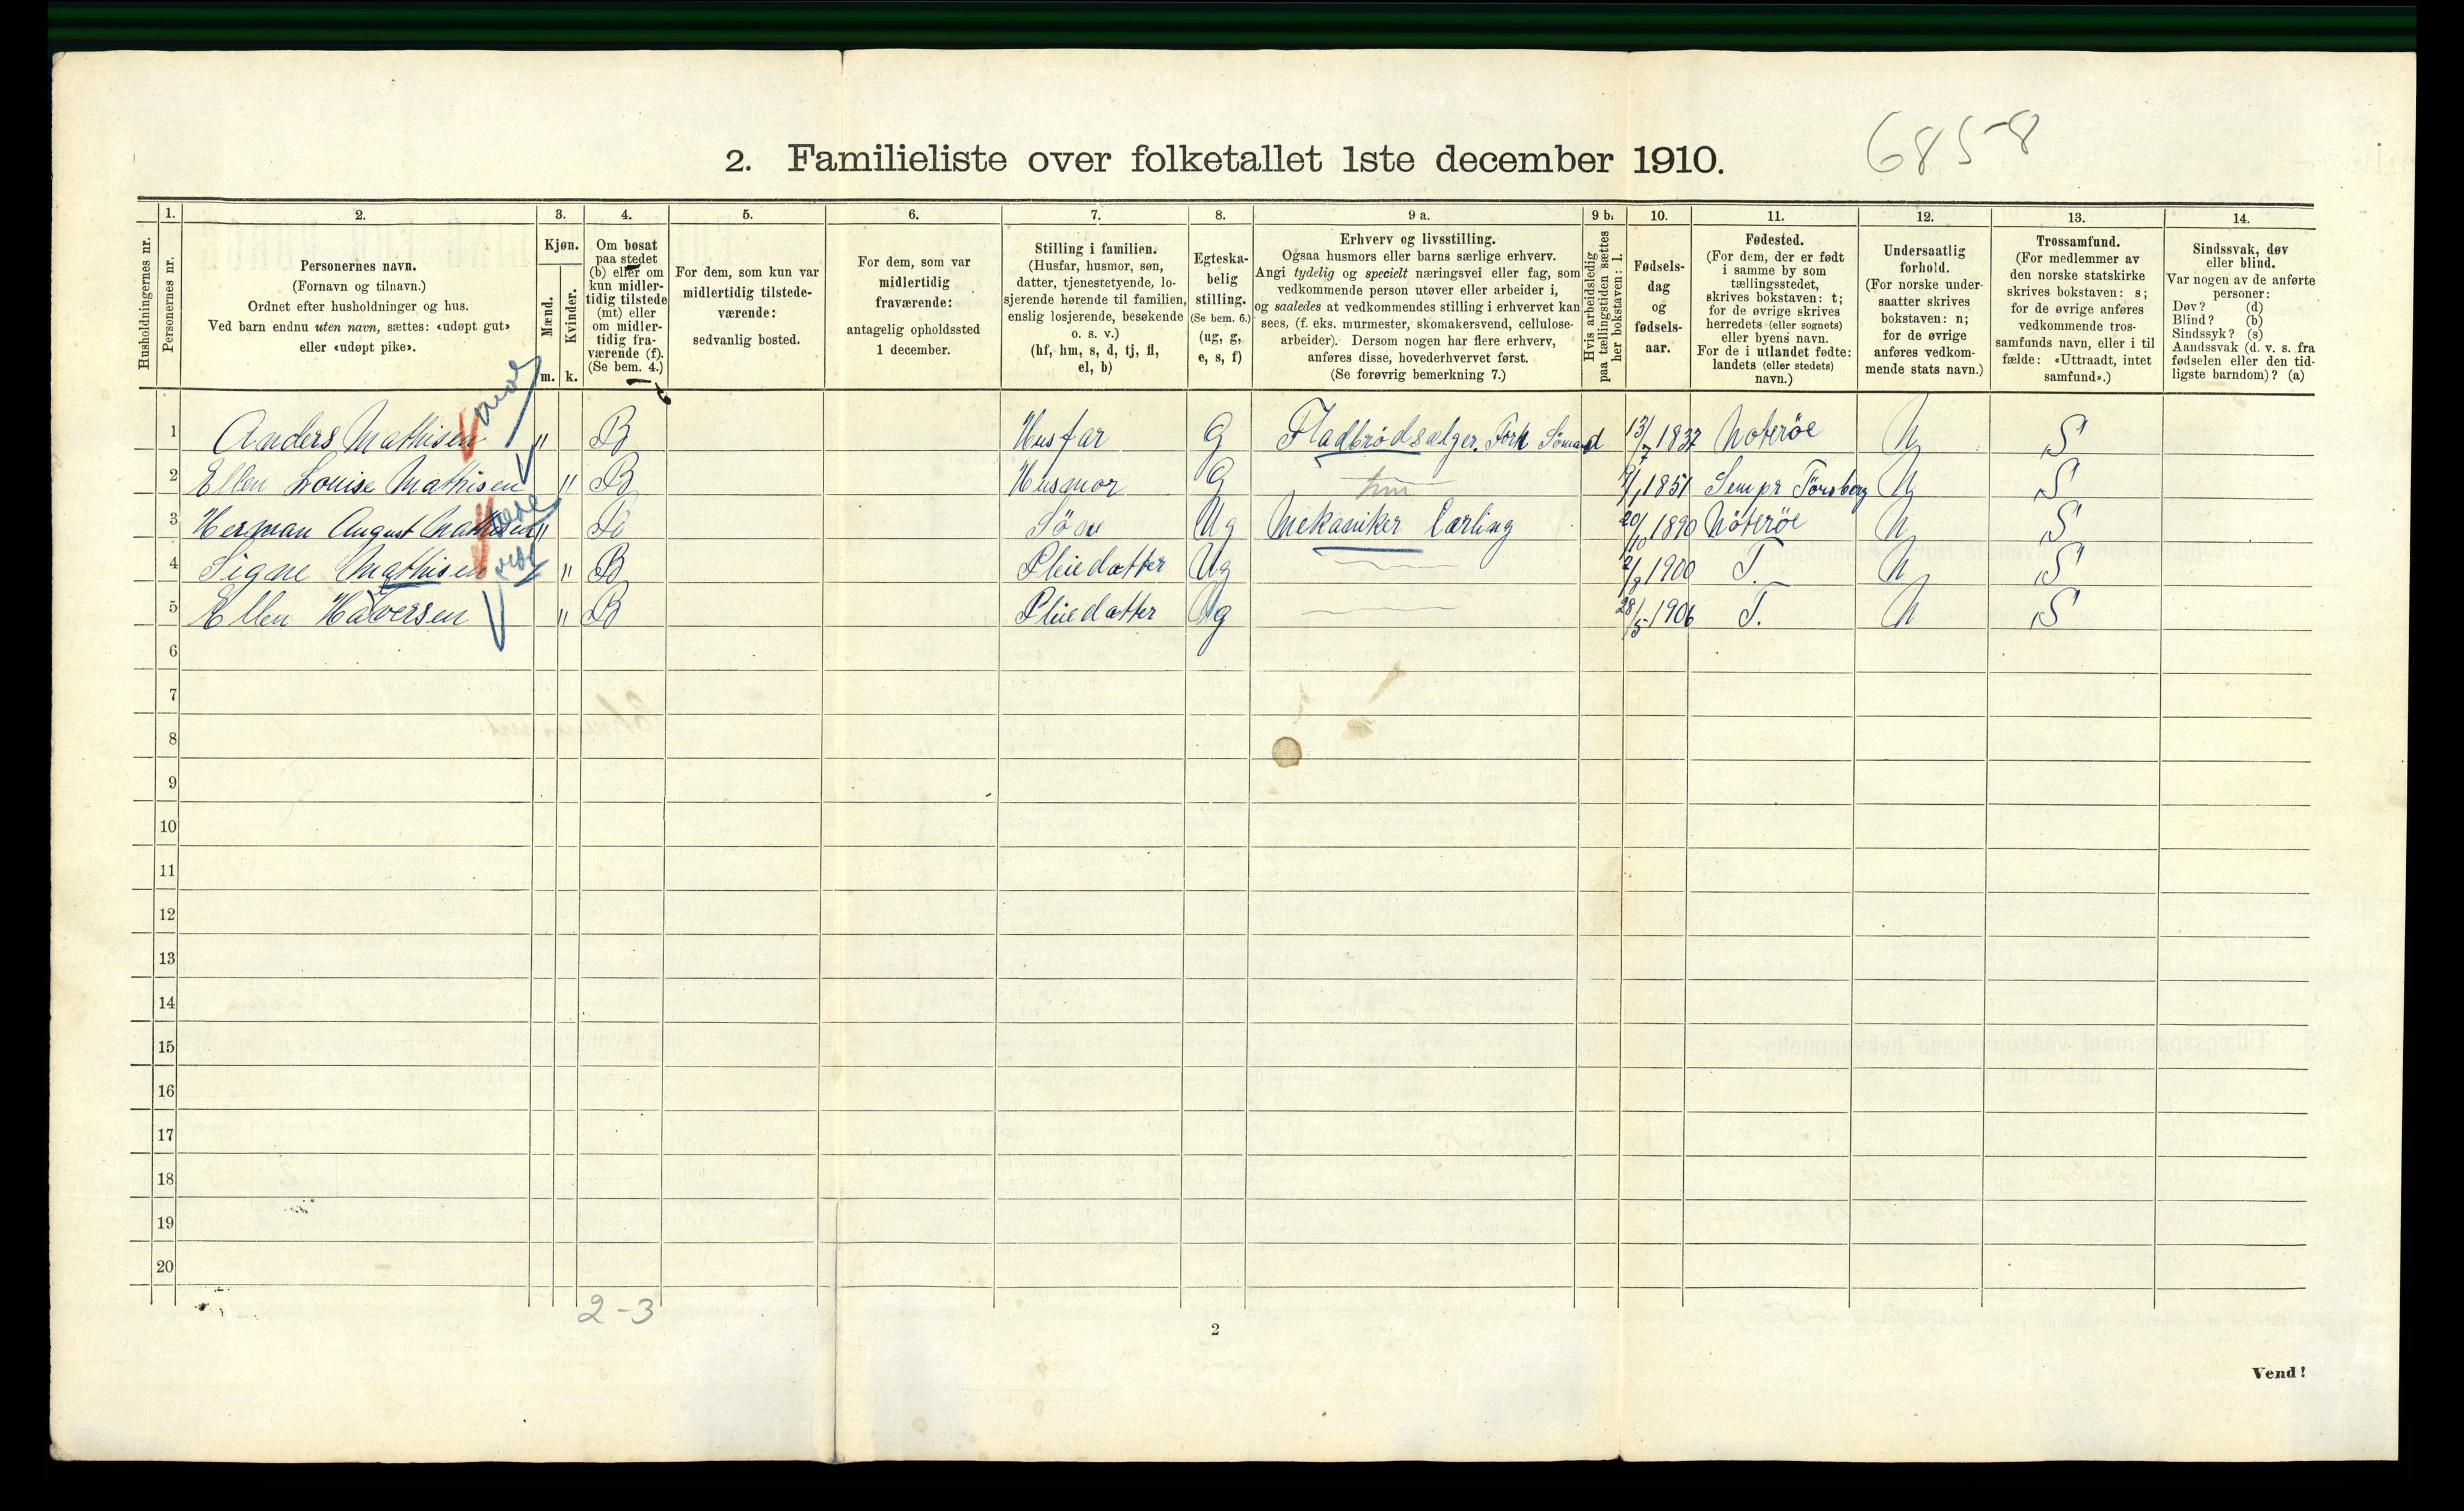 6858
2. Familieliste over folketallet 1ste december 1910.
Husholdningernes nr.
1. Personernes nr.
2. Personernes navn.
(Fornavn og tilnavn.)
Ordnet efter husholdninger og hus.
Ved barn endnu uten navn, sættes: «udøpt gut»
eller «udøpt pike».
3. Kjøn.
Mænd. m.
Kvinder. k.
4. Om bosat
paa stedet
(b) eller om
kun midler-
tidig tilstede
(mt) eller
om midler-
tidig fra-
værende (f).
(Se bem. 4.)
5. For dem, som kun var
midlertidig tilstede-
værende:
sedvanlig bosted.
6. For dem, som var
midlertidig
fraværende:
antagelig opholdssted
1 december.
7. Stilling i familien.
(Husfar, husmor, søn,
datter, tjenestetyende, lo-
sjerende hørende til familien,
enslig losjerende, besøkende
o. s. v.)
(hf, hm, s, d, tj, fl,
el, b)
8. Egteska-
belig
stilling.
(Se bem. 6.)
(ug, g,
e, s, f)
9 a. Erhverv og livsstilling.
Ogsaa husmors eller barns særlige erhverv.
Angi tydelig og specielt næringsvei eller fag, som
vedkommende person utøver eller arbeider i,
og saaledes at vedkommendes stilling i erhvervet kan
sees, (f. eks. murmester, skomakersvend, cellulose-
arbeider). Dersom nogen har flere erhverv,
anføres disse, hovederhvervet først.
(Se forøvrig bemerkning 7.)
9 b. Hvis arbeidsledig
paa tællingstiden sættes
her bokstaven: l.
10. Fødsels-
dag
og
fødsels-
aar.
11. Fødested.
(For dem, der er født
i samme by som
tællingsstedet,
skrives bokstaven: t;
for de øvrige skrives
herredets (eller sognets)
eller byens navn.
For de i utlandet fødte:
landets (eller stedets)
navn.)
12. Undersaatlig
forhold.
(For norske under-
saatter skrives
bokstaven: n;
for de øvrige
anføres vedkom-
mende stats navn.)
13. Trossamfund.
(For medlemmer av
den norske statskirke
skrives bokstaven: s;
for de øvrige anføres
vedkommende tros-
samfunds navn, eller i til
fælde: «Uttraadt, intet
samfund».)
14. Sindssvak, døv
eller blind.
Var nogen av de anførte
personer:
Døv? (d)
Blind? (b)
Sindssyk? (s)
Aandssvak (d. v. s. fra
fødselen eller den tid-
ligste barndom)? (a)
1 Anders Mathisen " B Husfar G Fladbrödsælger. Forh Sömand 13/7 1837 Nöteröe N S
2 Ellen Louise Mathisen " B Husmor G hm 1851 Sem pr Tönsberg N S
3 Herman August Mathisen " B Sön Ug Mekaniker Lærling 20/10 1890 Nöteröe N S
4 Signe Mathisen " B Pleiedatter Ug 2/8 1900 T. N S
5 Ellen Halversen " B Pleiedatter Ug 28/5 1906 T. N S
6
7
8
9
10
11
12
13
14
15
16
17
18
19
20
2-3
2
Vend!